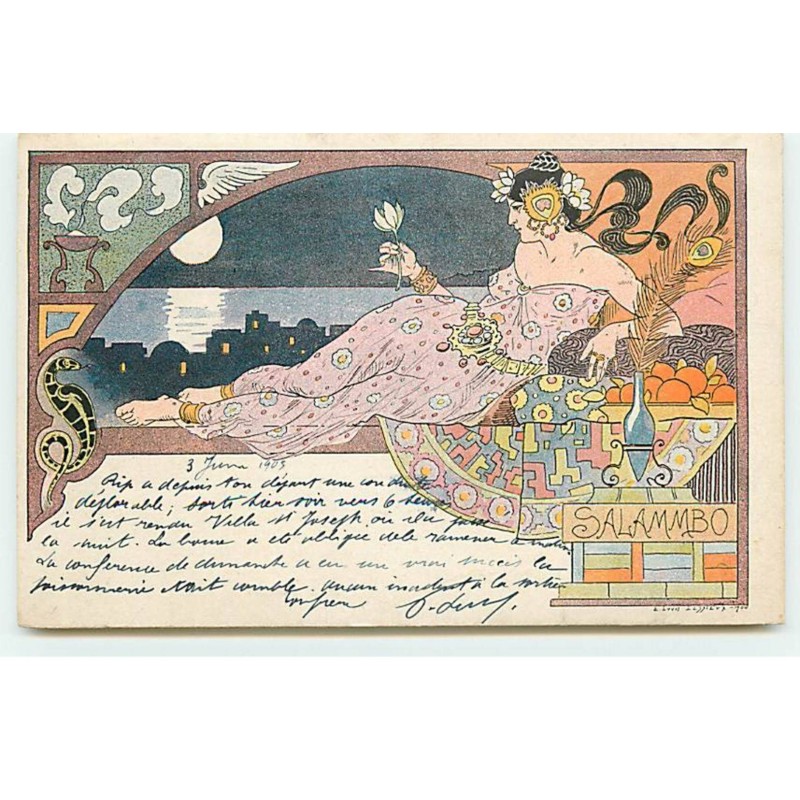 SALAMMBO
3 Juin 1903
Rip a depuis ton départ une conduite
déplorable; sorti hier soir vers 6 heures
il s'est rendu Villa St Joseph où il a passé
la nuit. La bonne a été obligée de le ramener
La conférence de dimanche a eu un vrai succès la
poissonnerie était comble. aucun incident à la sortie